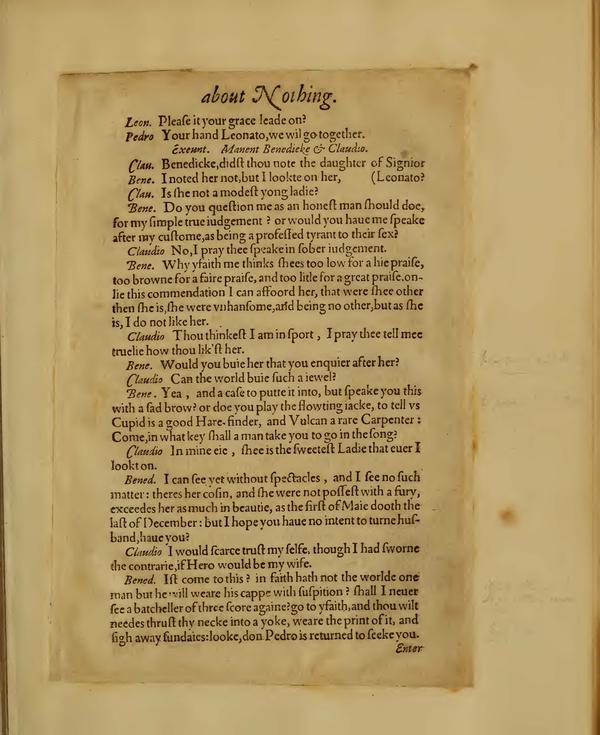 about Nothing.
Leon. Pleaſe it your grace leade on?
Pedro Your hand Leonato, we wil go together.
Exeunt. Manent Benedicke & Claudio.
Clau. Benedicke, didſt thou note the daughter of Signior
Bene. I noted her not, but I lookte on her, (Leonato?
Clau. Is ſhe not a modeſt yong ladie?
Bene. Do you queſtion me as an honeſt man ſhould doe,
for my ſimple true iudgement? or would you haue me ſpeake
after my cuſtome, as being a profeſſed tyrant to their ſex?
Claudio No, I pray thee ſpeake in ſober iudgement.
Bene. Why yfaith me thinks ſhees too low for a hie praiſe,
too browne for a faire praiſe, and too litle for a great praiſe, on-
lie this commendation I can affoord her, that were ſhee other
then ſhe is, ſhe were vnhanſome, and being no other, but as ſhe
is, I do not like her.
Claudio Thou thinkeſt I am in ſport, I pray thee tell mee
truelie how thou lik'ſt her.
Bene. Would you buie her that you enquier after her?
Claudio Can the world buie ſuch a iewel?
Bene. Yea, and a caſe to putte it into, but ſpeake you this
with a ſad brow? or doe you play the flowting iacke, to tell vs
Cupid is a good Hare-finder, and Vulcan a rare Carpenter:
Come, in what key ſhall a man take you to go in the ſong?
Claudio In mine eie, ſhee is the ſweeteſt Ladie that euer I
lookt on.
Bened. I can ſee yet without ſpectacles, and I ſee no ſuch
matter: theres her coſin, and ſhe were not poſſeſt with a fury,
exceedes her as much in beautie, as the firſt of Maie dooth the
laſt of December: but I hope you haue no intent to turne huſ-
band, haue you?
Claudio I would ſcarce truſt my ſelfe, though I had ſworne
the contrarie, if Hero would be my wife.
Bened. Iſt come to this? in faith hath not the worlde one
man but he will weare his cappe with ſuſpition? ſhall I neuer
ſee a batcheller of three ſcore againe? go to yfaith, and thou wilt
needes thruſt thy necke into a yoke, weare the print of it, and
ſigh away ſundaies: looke, don Pedro is returned to ſeeke you.
Enter